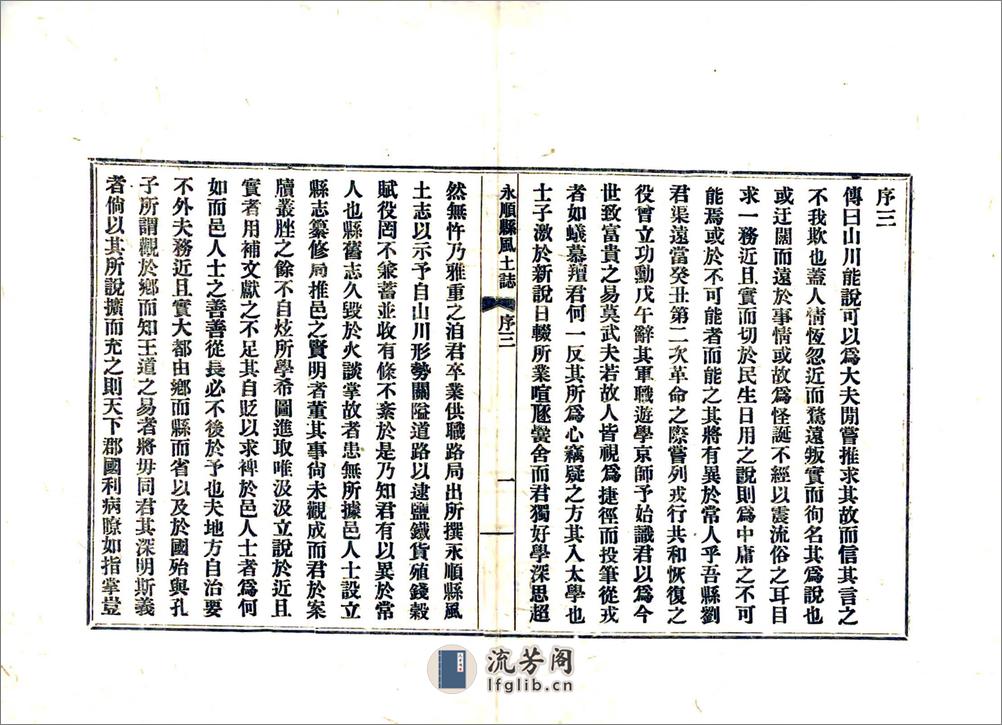 序三
傳曰山川能說可以爲大夫閒嘗推求其故而信其言之
不我欺也蓋人情恆忽近而騖遠叛實而徇名其爲說也
或迂闊而遠於事情或故爲怪誕不經以震流俗之耳目
求一務近且實而切於民生日用之說則爲中庸之不可
能焉或於不可能者而能之其將有異於常人乎吾縣劉
君渠遠當癸丑第二次革命之際嘗列戎行共和恢復之
役曾立功勳戊午辭其軍職遊學京師予始識君以爲今
世致富貴之易莫武夫若故人皆視爲捷徑而投筆從戎
者如蟻慕羶君何一反其所爲心竊疑之方其入太學也
士子激於新說日輟所業喧豗黌舍而君獨好學深思超
永順縣風土誌
序三
一
然無忤乃雅重之洎君卒業供職路局出所撰永順縣風
土志以示予自山川形勢關隘道路以逮鹽鐵貨殖錢穀
賦役罔不兼蓄並收有條不紊於是乃知君有以異於常
人也縣舊志久毀於火談掌故者患無所據邑人士設立
縣志纂修局推邑之賢明者董其事尙未觀成而君於案
牘叢脞之餘不自炫所學希圖進取唯汲汲立說於近且
實者用補文獻之不足其自貶以求裨於邑人士者爲何
如而邑人士之善善從長必不後於予也夫地方自治要
不外夫務近且實大都由鄉而縣而省以及於國殆與孔
子所謂觀於鄉而知王道之易者將毋同君其深明斯義
者倘以其所說擴而充之則天下郡國利病瞭如指掌豈
流芳阁
lfglib.cn